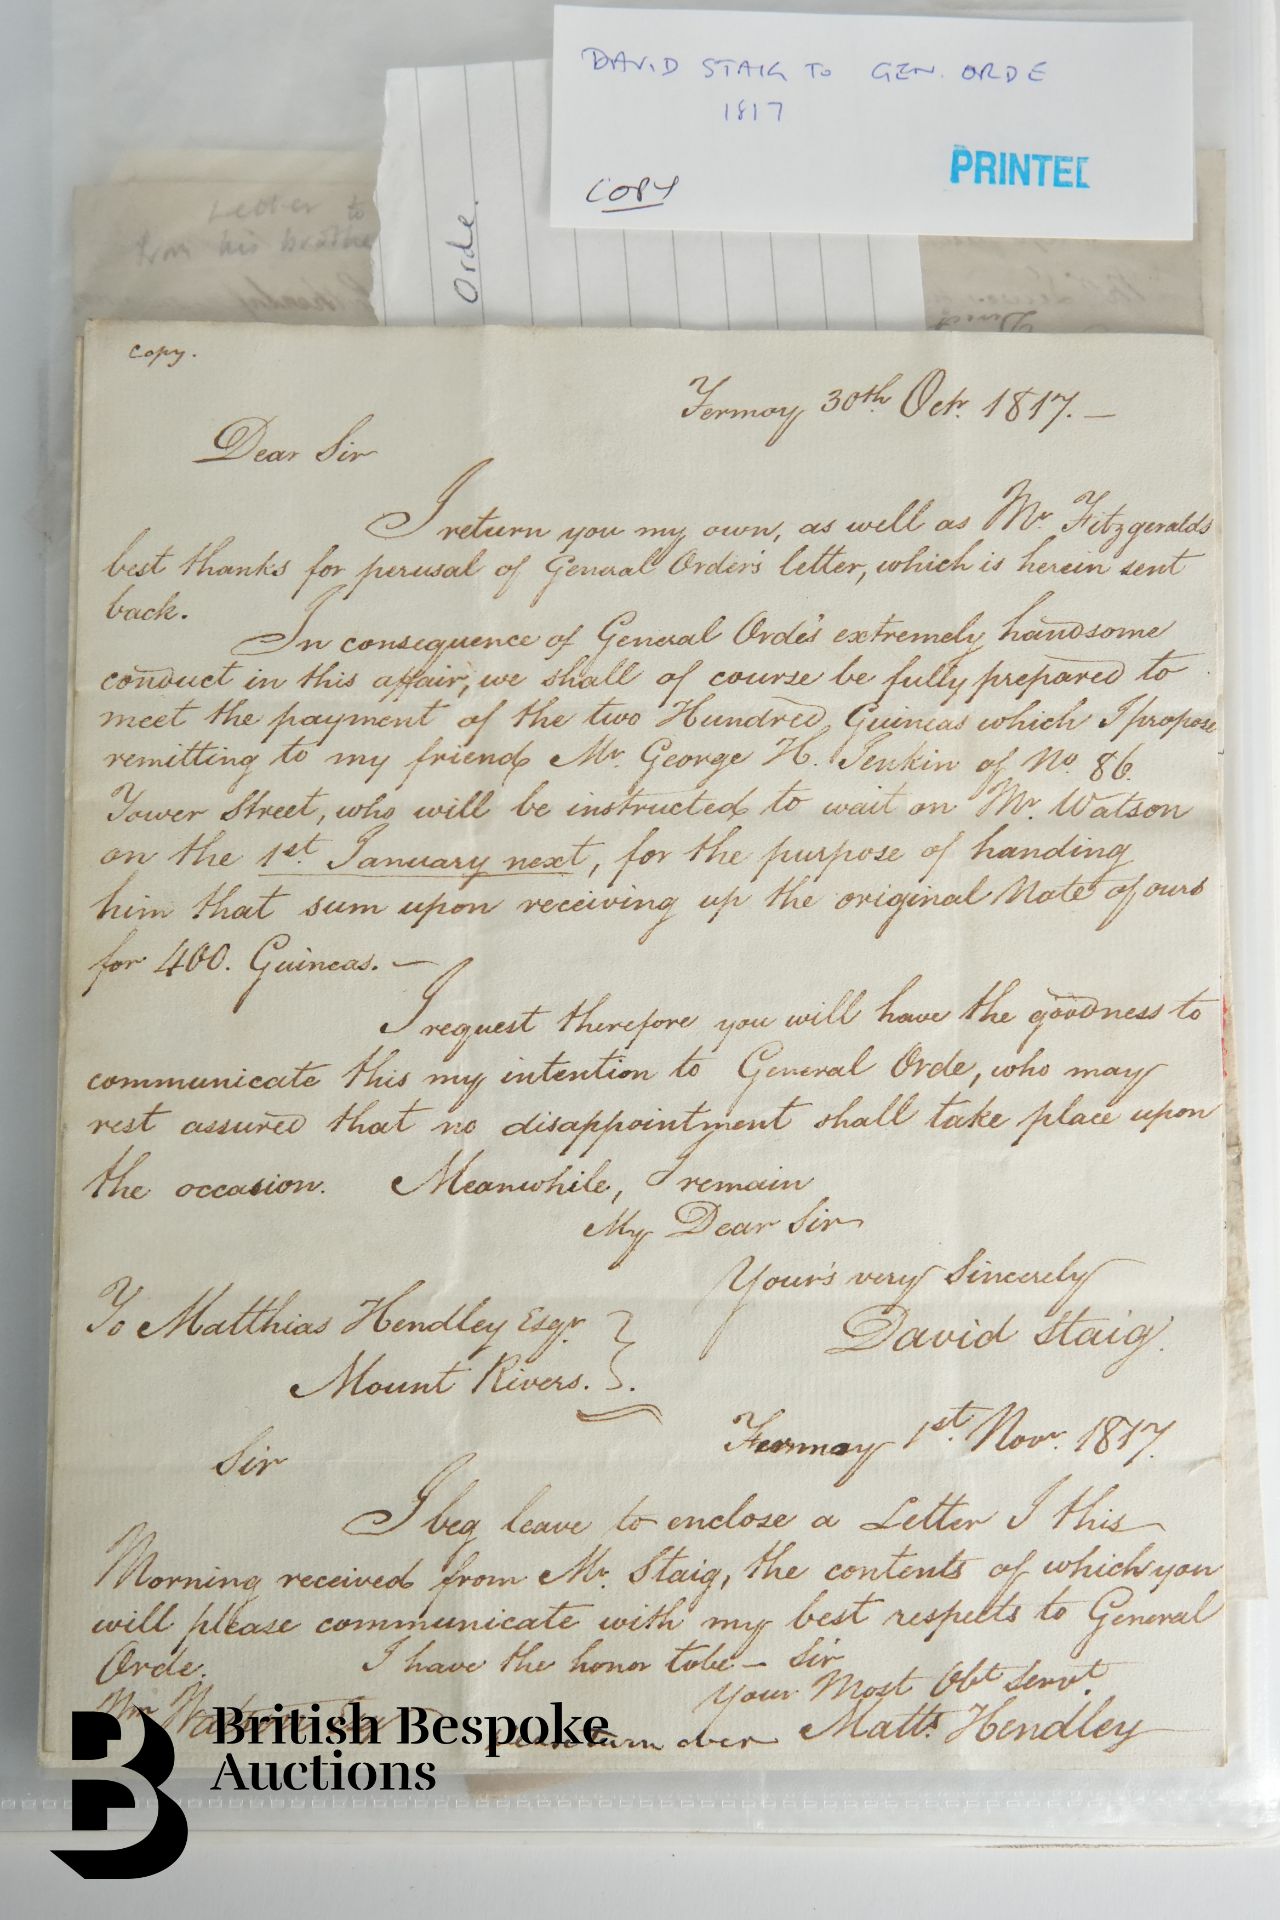 DAVID STAIG TO GEN. ORDE
1817
PRINTED
COPY
Letter to
from his brothe
Orde.
Copy.
Fermoy 30th. Octr. 1817. –
Dear Sir
I return you my own, as well as Mr. Fitzgeralds
best thanks for perusal of General Order's letter, which is herein sent
back.
In consequence of General Orde's extremely handsome
conduct in this affair, we shall of course be fully prepared to
meet the payment of the two Hundred Guineas which I propose
remitting to my friend Mr. George H. Jenkin of No. 86.
Tower Street, who will be instructed to wait on Mr. Watson
on the 1st. January next, for the purpose of handing
him that sum upon receiving up the original Note of ours
for 400. Guineas. –
I request therefore you will have the goodness to
communicate this my intention to General Orde, who may
rest assured that no disappointment shall take place upon
the occasion. Meanwhile, I remain
My Dear Sir
Your's very Sincerely
David Staig.
To Matthias Hendley Esqr.
Mount Rivers.
Fermoy 1st. Novr. 1817.
Sir
I beg leave to enclose a Letter I this
Morning received from Mr. Staig, the contents of which you
will please communicate with my best respects to General
Orde. I have the honor to be – Sir
Your Most Obt. Servt.
Wm Watson Esq turn over Matts. Hendley
British Bespoke
Auctions